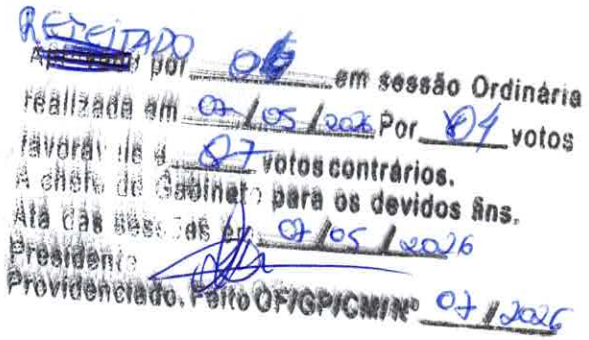 REJEITADO
Aprovado por 06 em sessão Ordinária
realizada em 07 / 05 / 2026 Por 01 votos
favoráveis e 07 votos contrários.
A chefe de Gabinete para os devidos fins.
Ata das sessões em 07 / 05 / 2026
Presidente
Providenciado. Feito OF/GP/CMI/Nº 07 / 2026